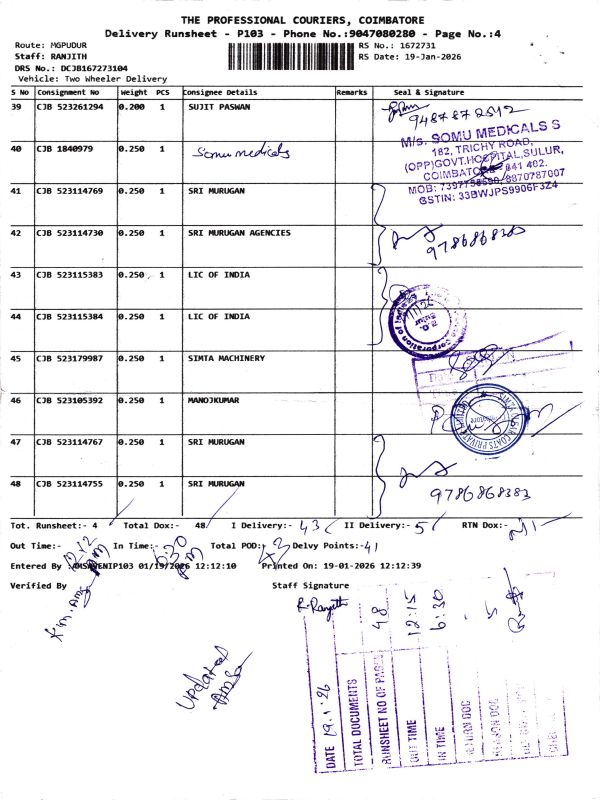 THE PROFESSIONAL COURIERS, COIMBATORE
Delivery Runsheet - P103 - Phone No.:9047080280 - Page No.:4
Route: MGPUDUR
RS No.: 1672731
Staff: RANJITH
RS Date: 19-Jan-2026
DRS No.: DCJB167273104
Vehicle: Two Wheeler Delivery
S No Consignment No Weight PCS Consignee Details Remarks Seal & Signature
39 CJB 523261294 0.200 1 SUJIT PASWAN
9487872512
40 CJB 1840979 0.250 1 Somu medicals
M/s. SOMU MEDICALS S
182, TRICHY ROAD,
(OPP)GOVT.HOSPITAL,SULUR,
COIMBATORE - 641 402.
8870787007
GSTIN: 33BWJPS9906F3Z4
41 CJB 523114769 0.250 1 SRI MURUGAN
42 CJB 523114730 0.250 1 SRI MURUGAN AGENCIES
43 CJB 523115383 0.250 1 LIC OF INDIA
44 CJB 523115384 0.250 1 LIC OF INDIA
45 CJB 523179987 0.250 1 SIMTA MACHINERY
46 CJB 523105392 0.250 1 MANOJKUMAR
47 CJB 523114767 0.250 1 SRI MURUGAN
48 CJB 523114755 0.250 1 SRI MURUGAN
9786868383
Tot. Runsheet:- 4 Total Dox:- 48 I Delivery:- 43 II Delivery:- 5 RTN Dox:-
Out Time:- In Time:- 6:30 PM Total POD:- 43 Delvy Points:- 41
Entered By 01/19/2026 12:12:10 Printed On: 19-01-2026 12:12:39
Verified By
Staff Signature
R. Ranjith
updated
DATE 19.1.26
TOTAL DOCUMENTS 48
RUNSHEET NO OF PAGES
OUT TIME 12:15
IN TIME 6:30
RETURN DOC
5